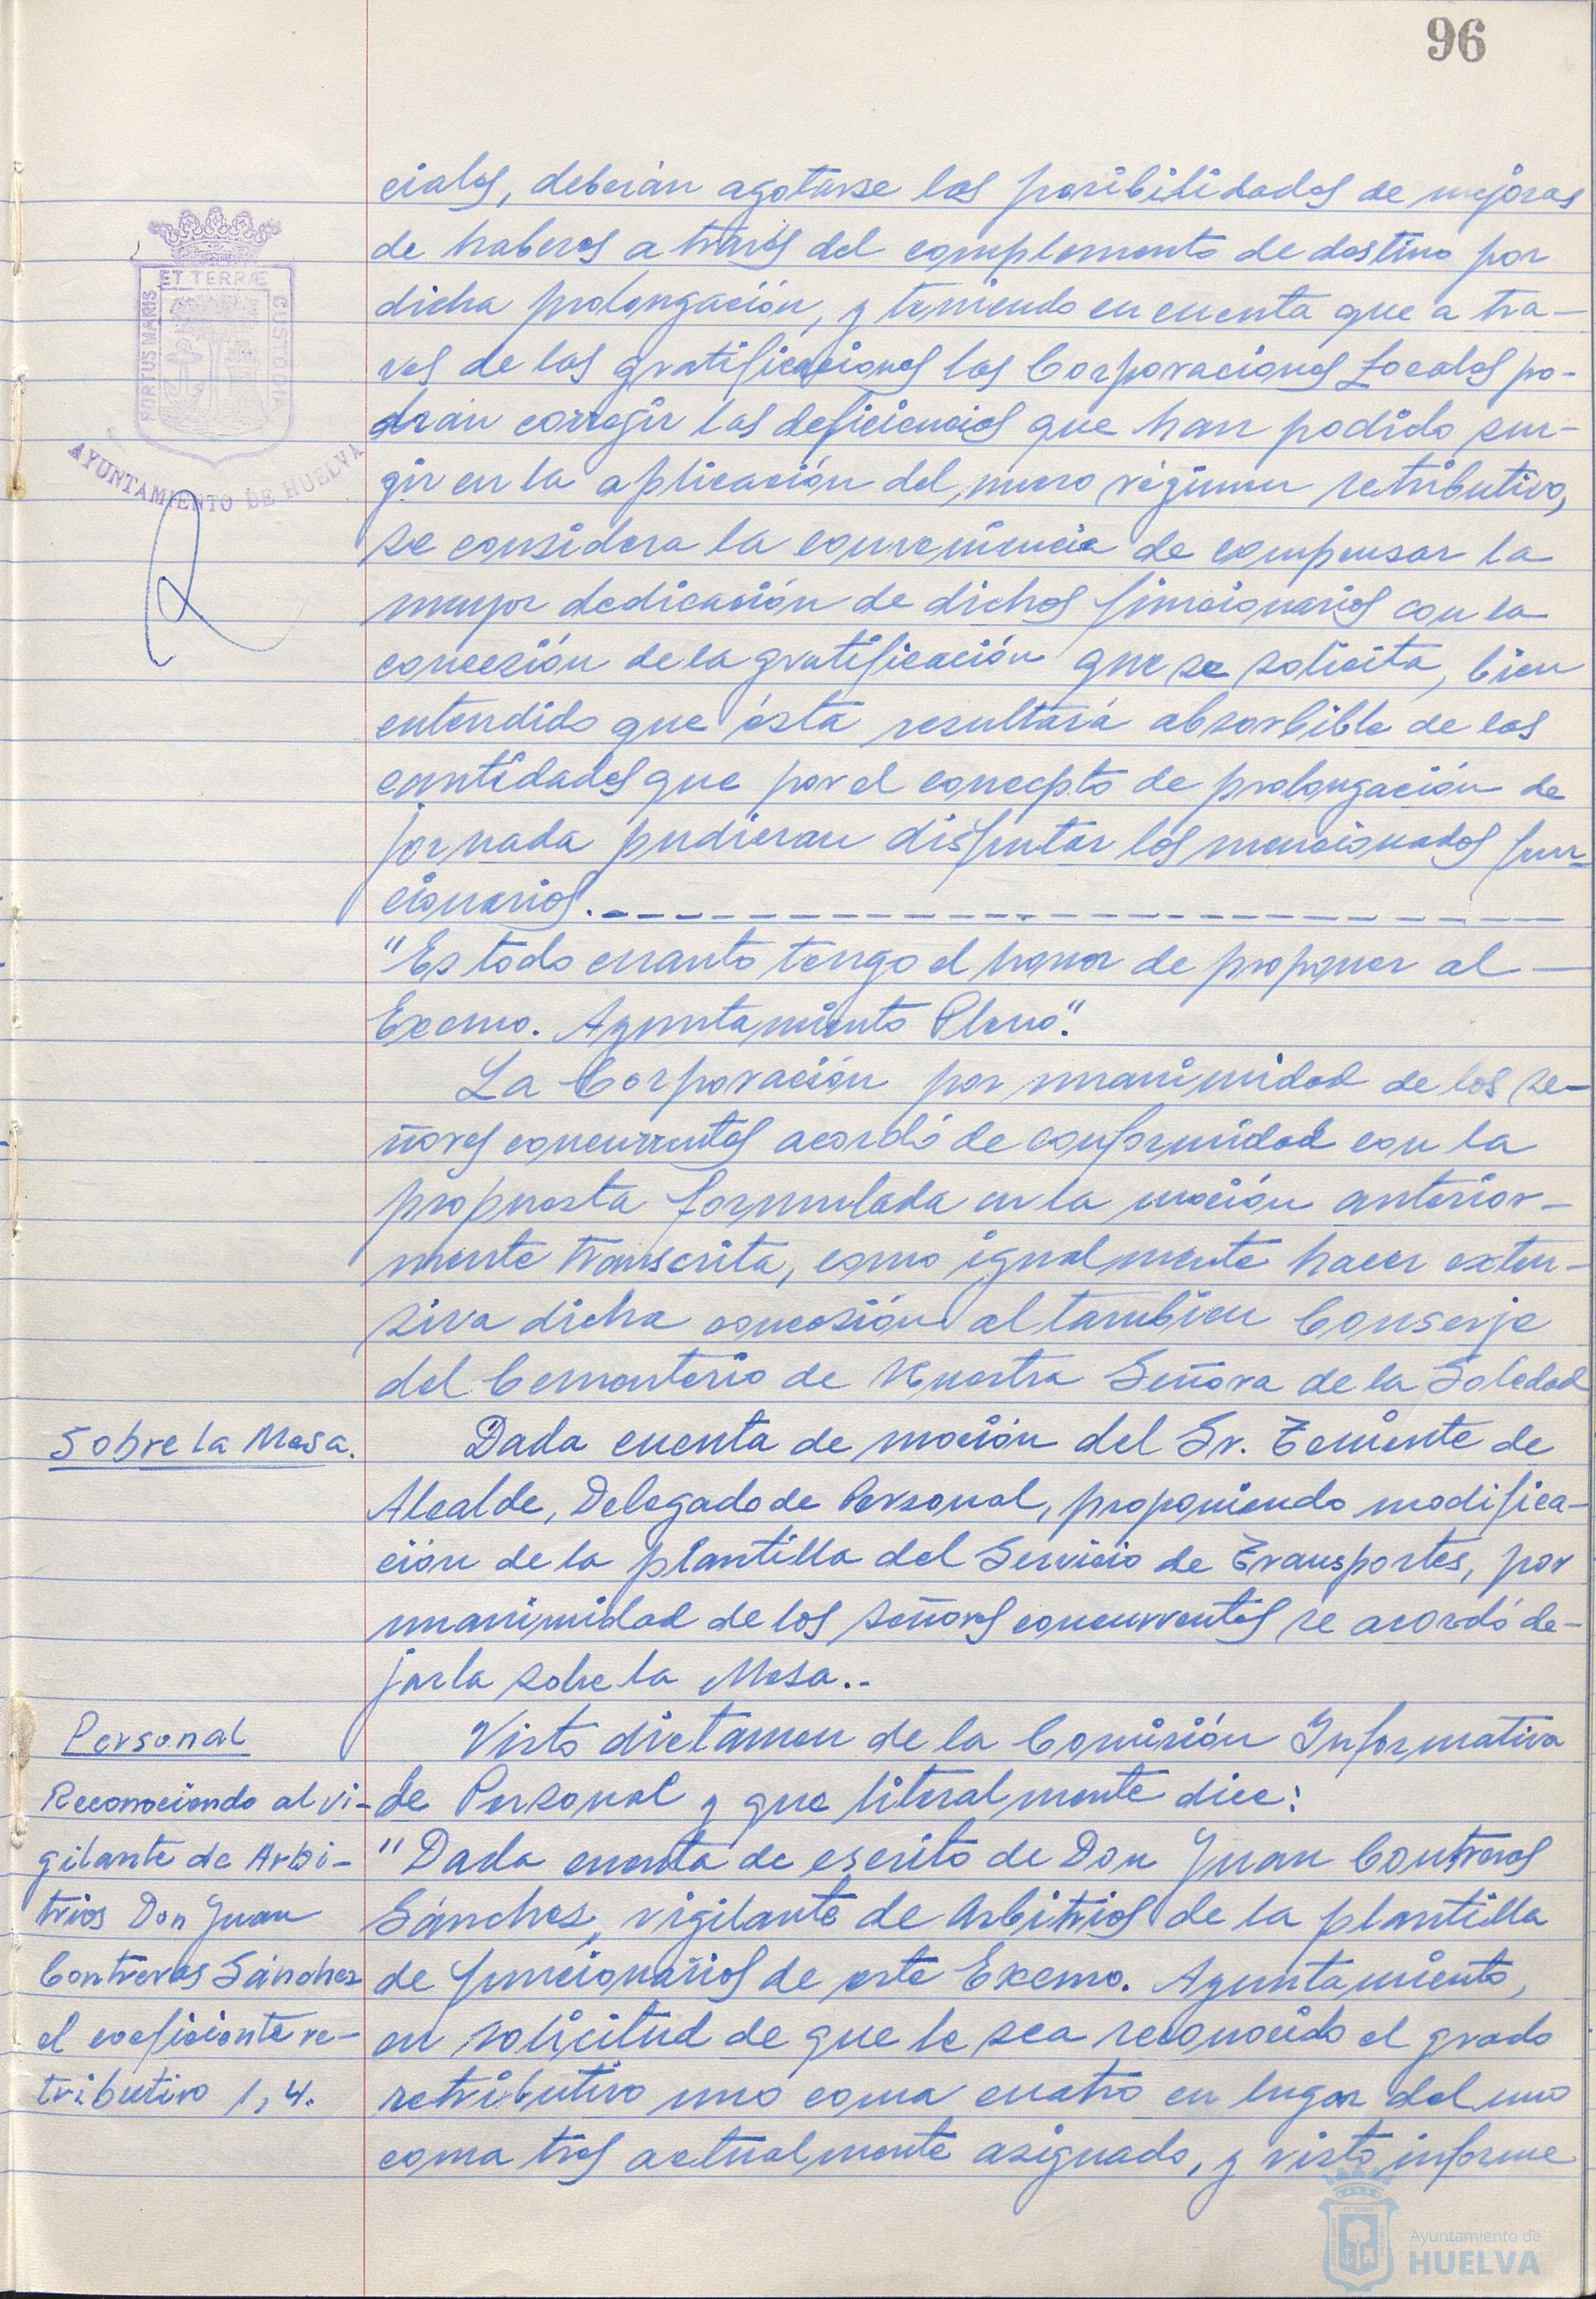 96
ciales, deberán agotarse las posibilidades de mejoras
de haberes a través del complemento de destino por
dicha prolongación, y teniendo en cuenta que a tra-
ves de las gratificaciones las Corporaciones Locales po-
drán corregir las deficiencias que han podido sur-
gir en la aplicación del nuevo régimen retributivo,
se considera la conveniencia de compensar la
mayor dedicación de dichos funcionarios con la
concesión de la gratificación que se solicita, bien
entendido que ésta resultará absorbible de las
cantidades que por el concepto de prolongación de
jornada pudieran disfrutar los mencionados fun-
cionarios.
"Es todo cuanto tengo el honor de proponer al
Excmo. Ayuntamiento Pleno".
La Corporación por unanimidad de los se-
ñores concurrentes acordó de conformidad con la
propuesta formulada en la moción anterior-
mente transcrita, como igualmente hacer exten-
siva dicha concesión al tambien Conserje
del Cementerio de Nuestra Señora de la Soledad
Sobre la Mesa.
Dada cuenta de moción del Sr. Teniente de
Alcalde, Delegado de Personal, proponiendo modifica-
ción de la plantilla del Servicio de Transportes, por
unanimidad de los señores concurrentes se acordó de-
jarla sobre la Mesa..
Personal
Reconociendo al vi-
gilante de Arbi-
trios Don Juan
Contreras Sánchez
el coeficiente re-
tributivo 1,4.
Visto dictamen de la Comisión Informativa
de Personal y que literalmente dice:
"Dada cuenta de escrito de Don Juan Contreras
Sánchez, vigilante de Arbitrios de la plantilla
de funcionarios de este Excmo. Ayuntamiento,
en solicitud de que le sea reconocido el grado
retributivo uno coma cuatro en lugar del uno
coma tres actualmente asignado, y visto informe
PORTUS MARIS
ET TERRÆ
CUSTODIA
AYUNTAMIENTO DE HUELVA
Ayuntamiento de
HUELVA